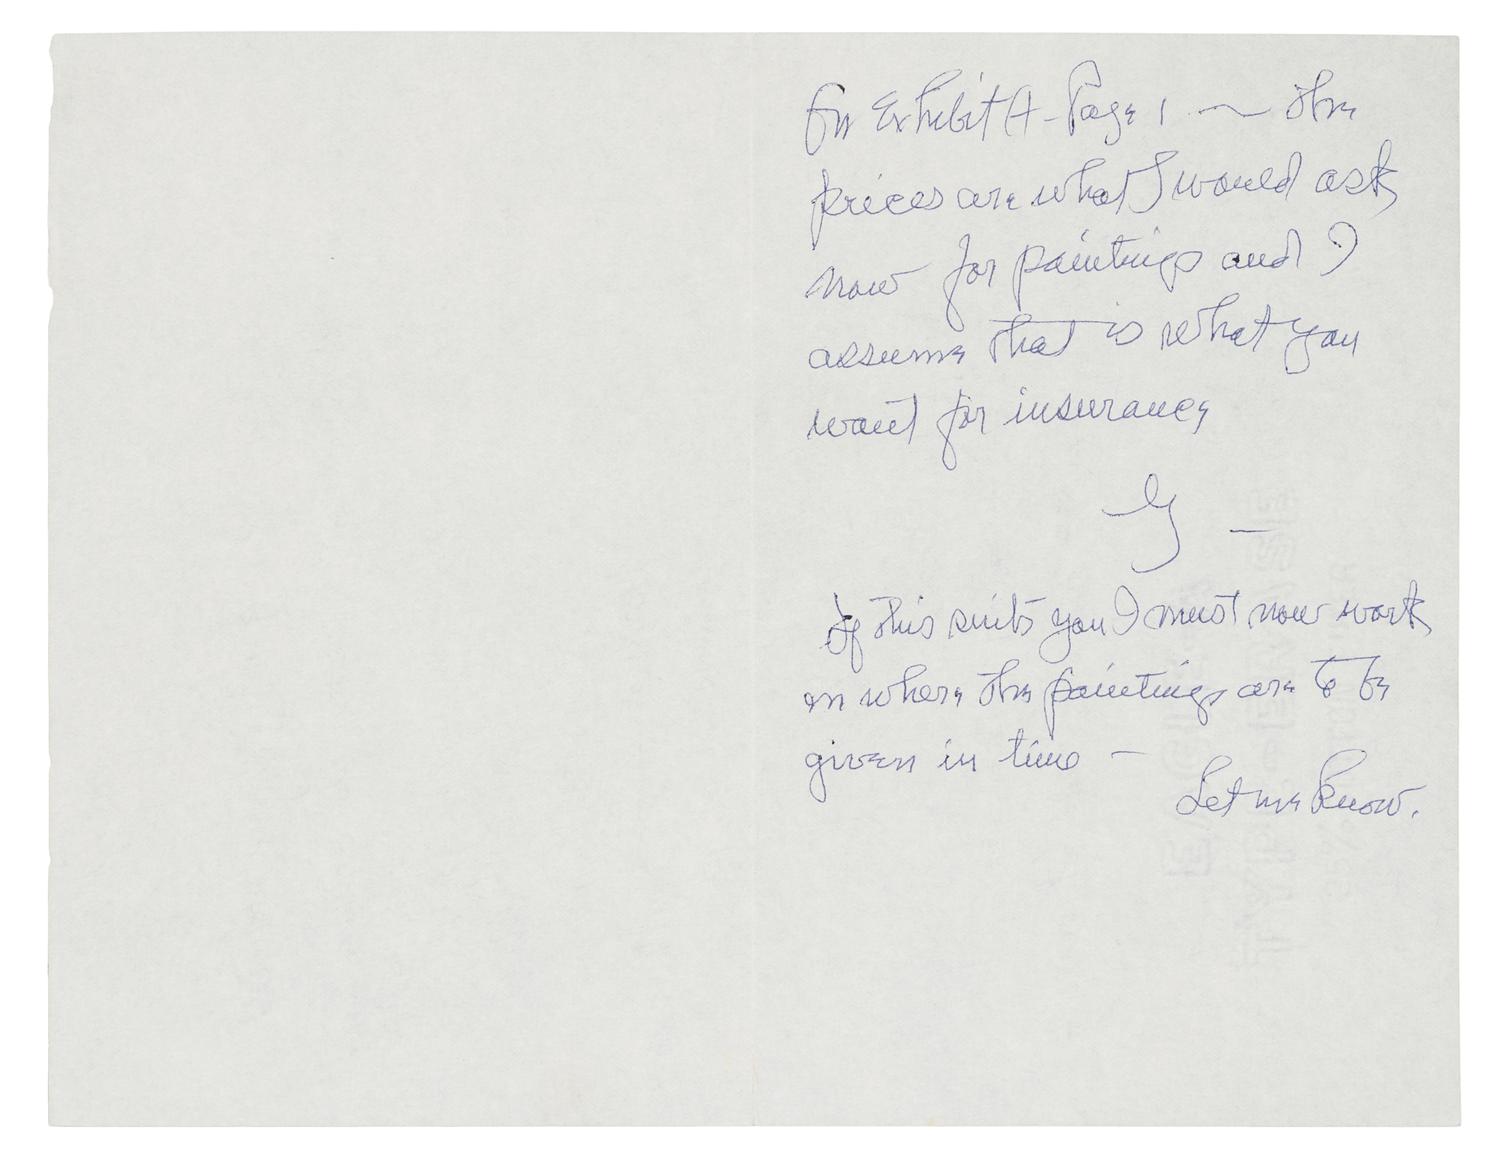 For Exhibit A - Page 1 — the
prices are what I would ask
now for paintings and I
assume that is what you
want for insurance
G —
If this suits you I must now work
on where the paintings are to be
given in time —
Let me know.